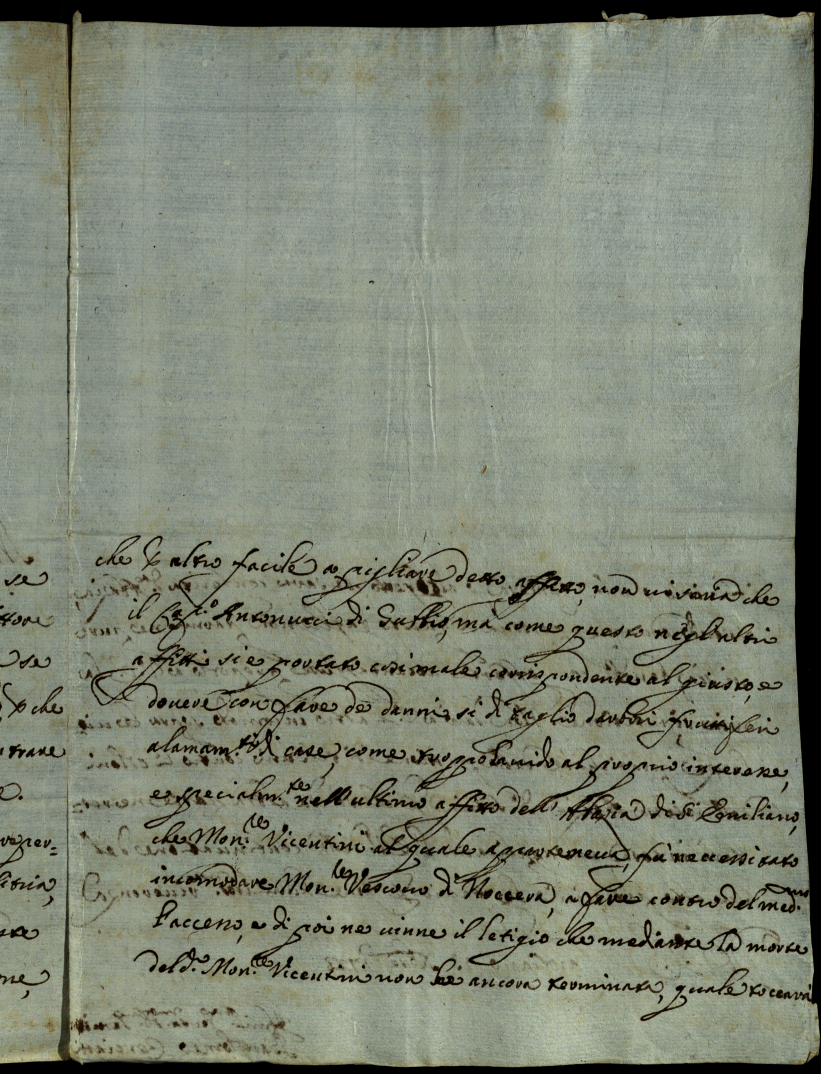 se
ttore
se
p che
trare
e.
per=
itia,
re
ne,
che p altro facile a pigliare detto affitto, non vi saria che
il Antonucci di Gubbio, ma come questo negl'altri
affitti si e portato cosi male corrispondente al giusto, e
dovere con fare de danni, si di taglio d'arbori fruttiferi
alamam.to di case, come troppo avido al proprio interesse,
e specialm.te nell'ultimo affitto dell'Abazia di S. Emiliano,
che Mon.re Vicentini al quale apparteneva, fu necessitato
incomodare Mon.re Vescovo di Nocera, a fare contro del med.mo
l'accesso, e di poi ne vinne il letigio che mediante la morte
del d.o Mon.re Vicentini non he ancora terminata, quale toccarà